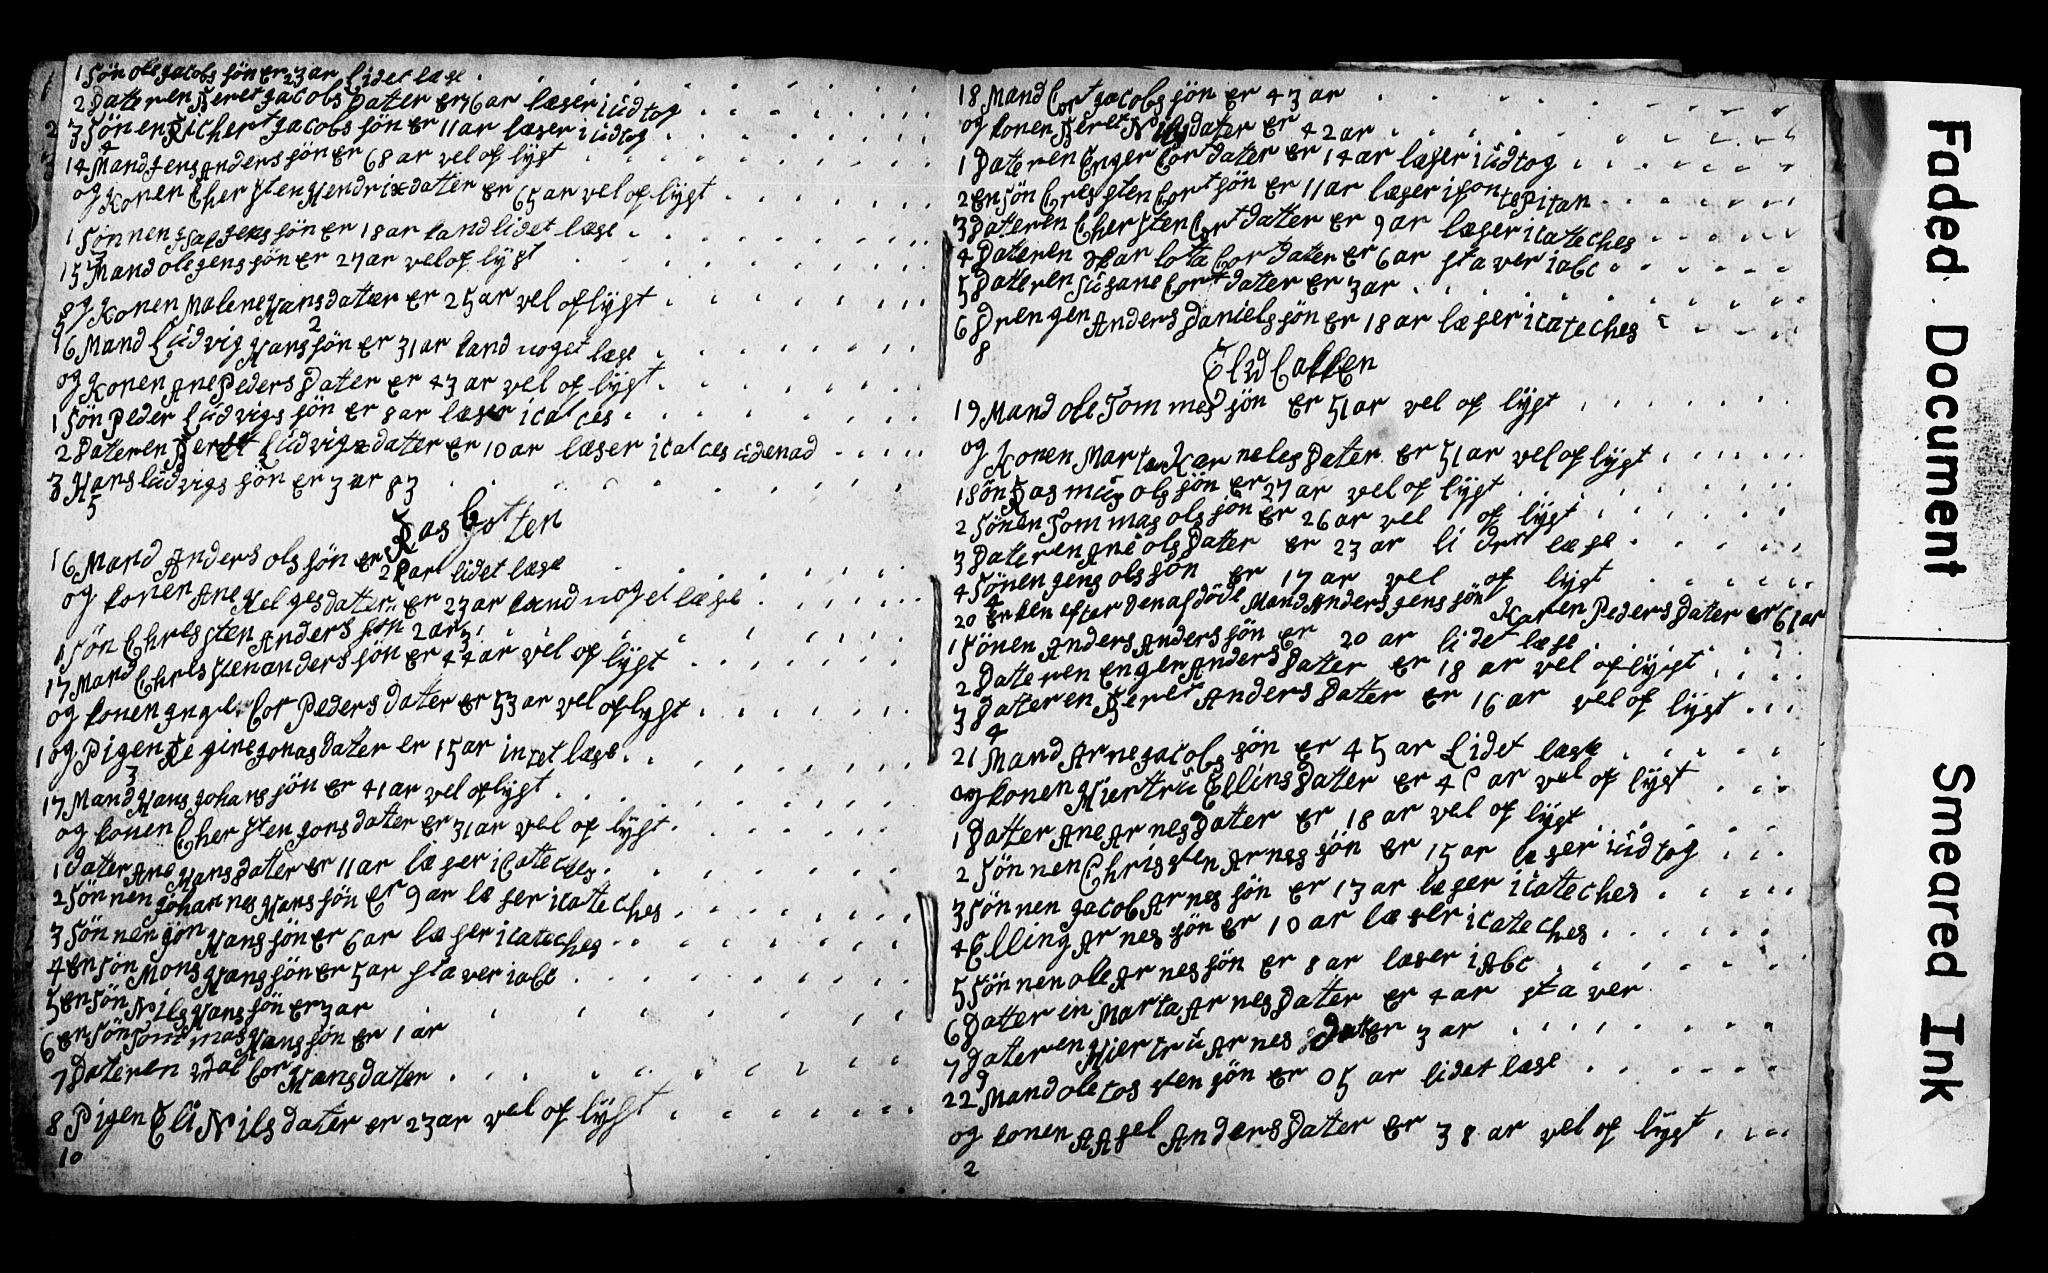 1 Sön ole Jacobs sön er 23 ar lidet læse
2 Dateren Beret Jacobs Dater er 16 ar læser i üdtog
3 Sönen Richert Jacobs sön er 11 ar læser i üdtog
4
14 Mand Jens Anders sön er 68 ar vel op lyst
og Konen Chersten Hendrix datter er 65 ar vel op lyst
1 Sönnen Jens sön er 18 ar kand lidet læse
3
15 Mand ole Jens sön er 27 ar vel op lyst
og Konen Malene Hans datær er 25 ar vel op lyst
2
16 Mand Lüdvig Hans sön er 31 ar kand noget læse
og Konen Ane Peders Dater er 43 ar vel op lyst
1 Sön Peder Lüdvigs sön er 8 ar læser i catces
2 Dateren Beret Lüdvigs datter er 10 ar læser i catces üdenad
3 Hans lüdvigs sön er 3 ar 83
5
Ras Cotten
16 Mand Anders ols sön er 28 ar lidet læse
og konen Ane Helges dater er 23 ar kand noget læse
1 Sön Chressten Anders sön 2 ar
3
17 Mand Chressten anders sön er 44 ar vel op lygt
og konen Peders datter er 53 ar vel op lygt
1 og Pigen Regine Jonas dater er 15 ar intet læse
3
17 Mand Hans Johans sön er 41 ar vel op lygt
og konen Chersten Jons datter er 31 ar vel op lygt
1 dater Ane Hans dater er 11 ar læser i Cateches
2 Sönnen Johannes Hans sön Er 9 ar læser i cateches
3 Sönnen Jon Hans sön er 6 ar læser i cateches
4 en sön Mons Hans sön er 5 ar staver i abc
5 en sön Nils Hans sön er 3 ar
6 en sön Tommas Hans sön er 1 ar
7 Dateren Hans datter
8 Pigen Eli Nils dater er 23 ar vel op lygt
10
18 Mand Cort Jacobs sön er 43 ar
og konen Beret Nils dater er 42 ar
1 Dateren Enger Cort dater er 14 ar læser i üdtog
2 en sön Cressten Cort sön er 11 ar læser i
3 Dateren Chersten Cort datter er 9 ar læser i cateches
4 Dateren Cort dater er 6 ar staver i abc
5 Dateren Süsane Cort dater er 3 ar
6 Drengen Anders Daniels sön er 18 ar læser i cateches
8
Elvd Callen
19 Mand ole Tommes sön er 51 ar vel op lygt
og Konen Marta Karneles Dater er 51 ar vel op lygt
1 Sön Rasmüs ols sön er 27 ar vel op lygt
2 Sönen Tommas ols sön er 26 ar vel op lygt
3 Dateren Ane ols Dater er 23 ar lidet læse
4 Sönen Jens ols sön er 17 ar vel op lygt
4
20 Enken efter den afdöde Mand Anders Jens sön Karen Peders Dater er 61 ar
1 Sönen Anders Anders sön er 20 ar lidet læse
2 Dateren Enger Anders Datter er 18 ar vel op lygt
3 Dateren Beret Anders Datter er 16 ar vel op lygt
4
21 Mand Arne Jacobs sön er 45 ar lidet læse
og konen Hiertrü Ellins Dater er ar vel op lygt
1 Datter Ane Arnes Dater er 18 ar vel op lygt
2 Sönnen Chrissten Arnes sön er 15 ar læser i üdtog
3 Sönnen Jacob Arnes sön er 13 ar læser i cateches
4 Elling Arnes sön er 10 ar læser i cateches
5 Sönnen ole Arnes sön er 8 ar læser i Abc
6 Datter in Marta Arnes Datter er 4 ar sta ver
7 Dateren Hiertrü Arnes Dater 3 ar
9
22 Mand ole tosten sön er 05 ar lidet læse
og konen Anders Dater er 38 ar vel op lygt
2
Faded Document
Smeared Ink